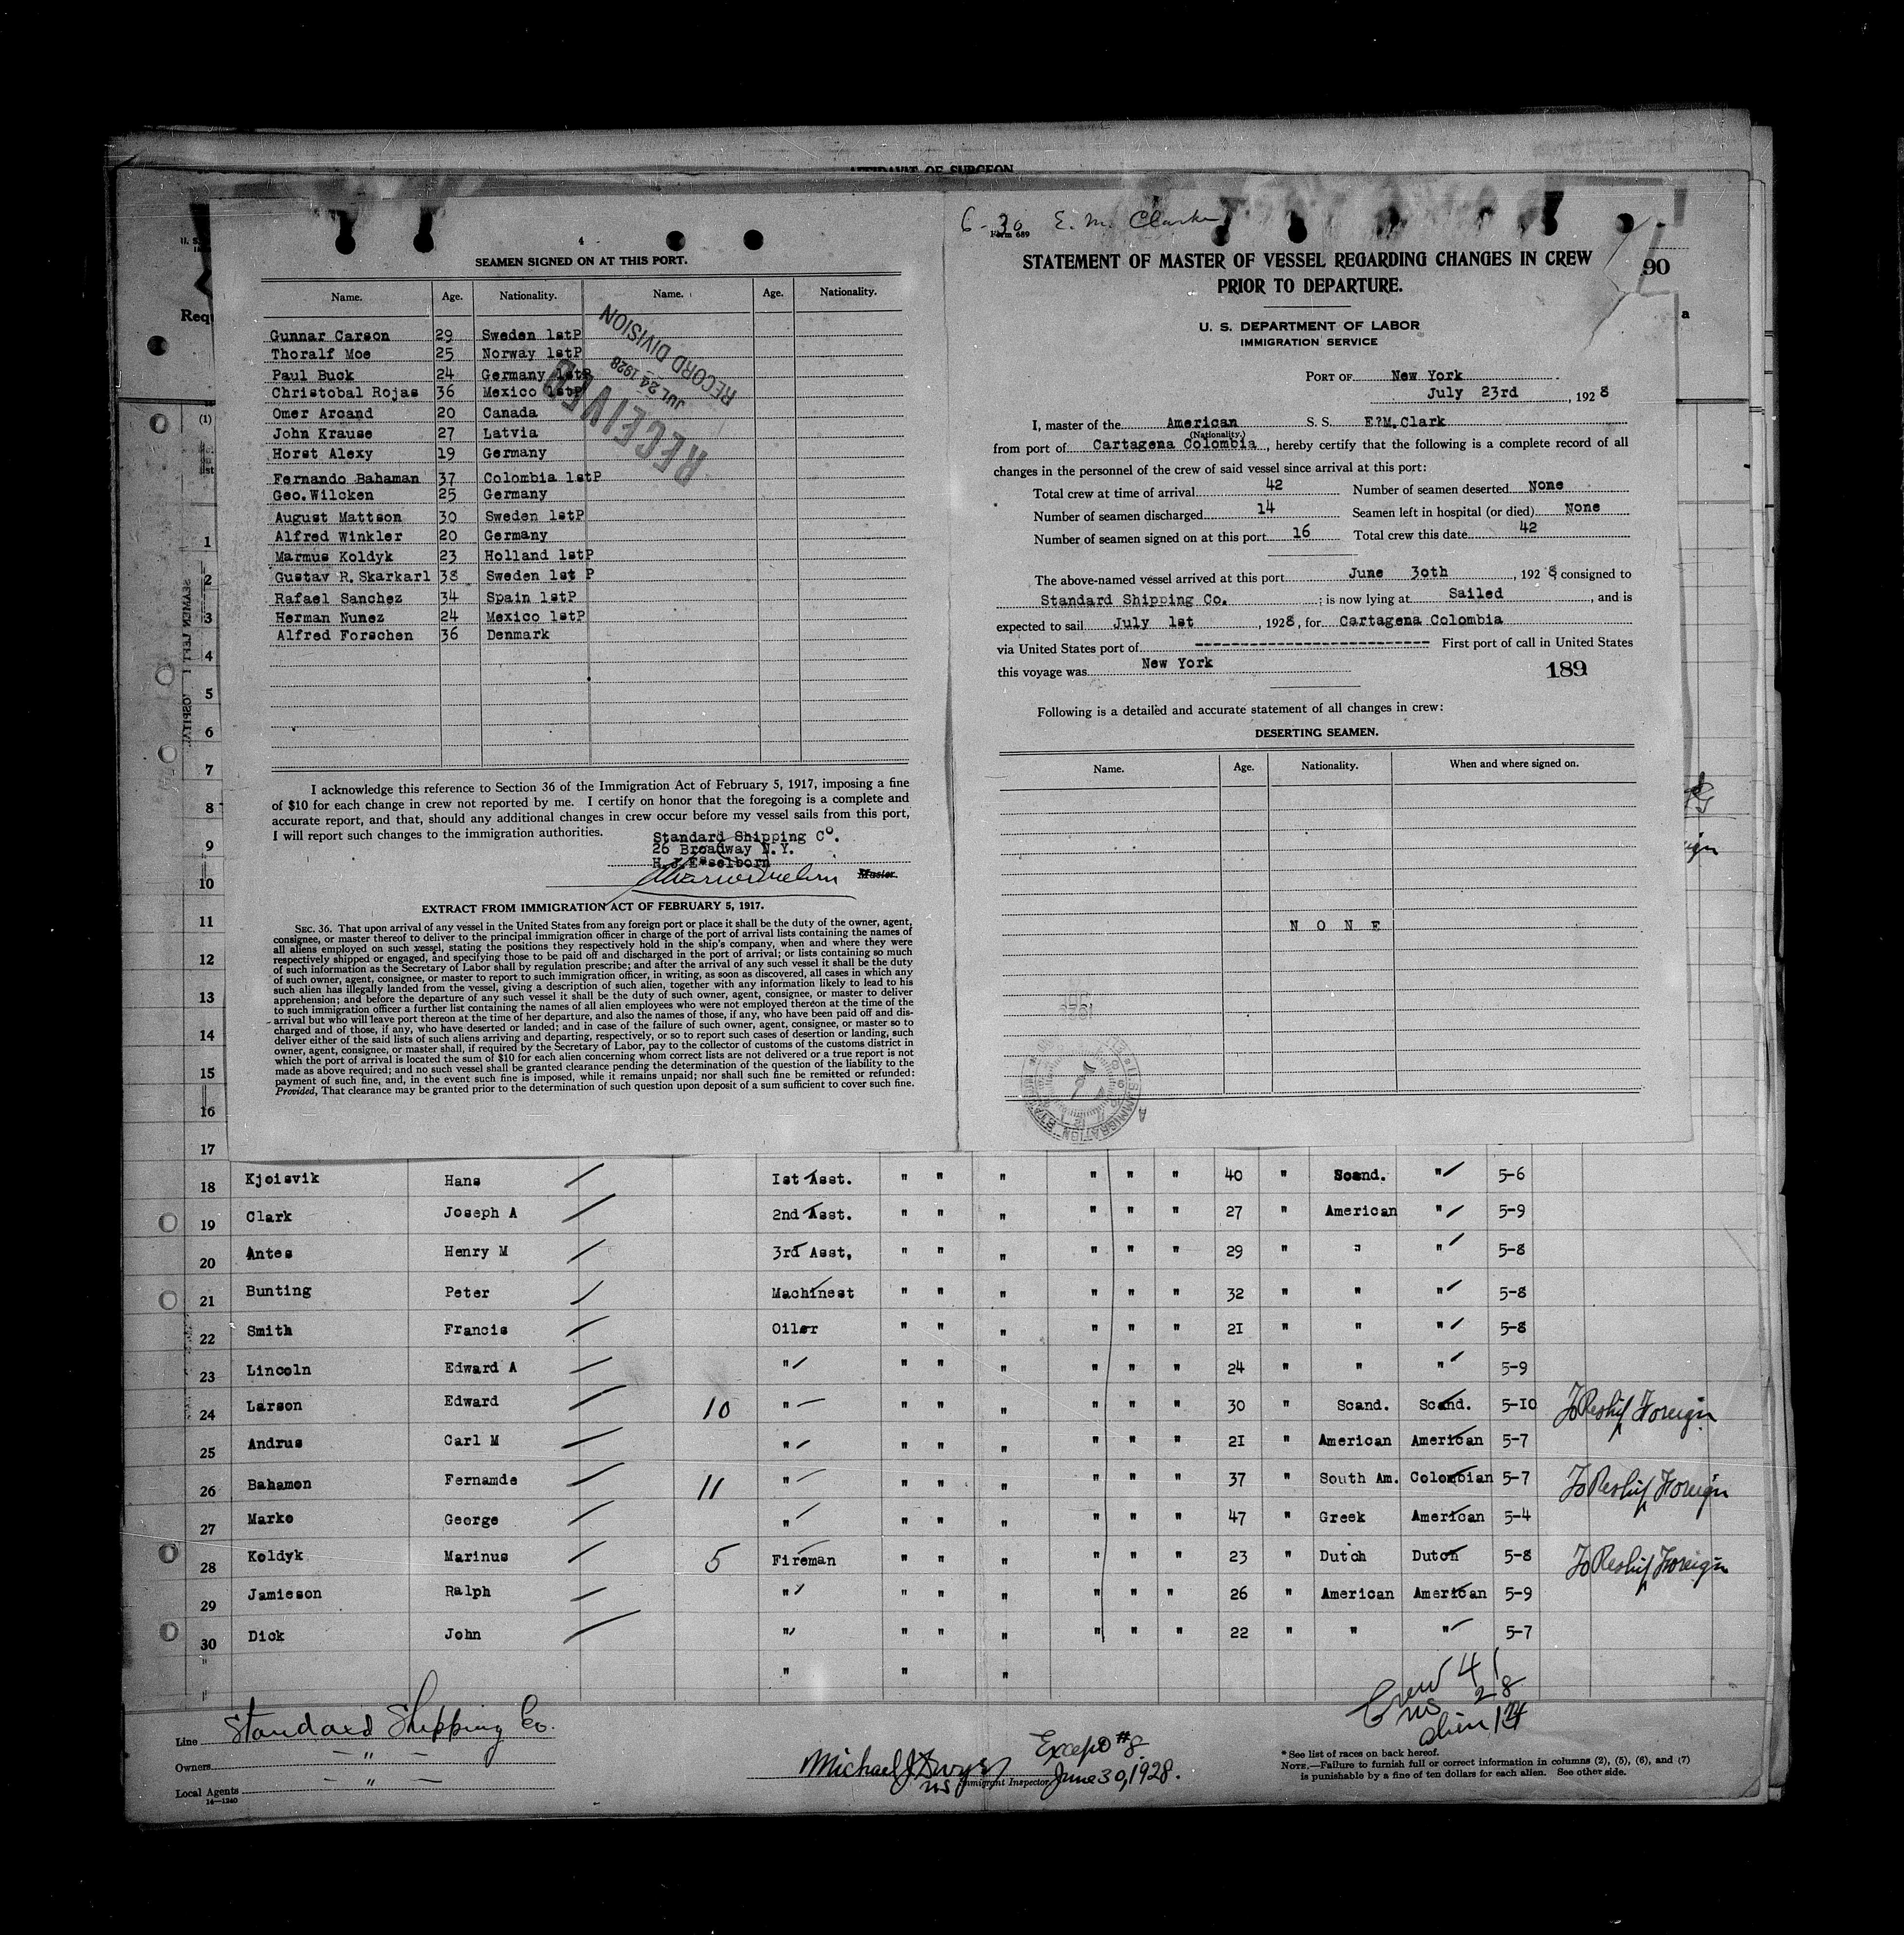 AFFIDAVIT OF SURGEON
4
SEAMEN SIGNED ON AT THIS PORT.
Name. Age. Nationality. Name. Age. Nationality.
Gunnar Carson 29 Sweden 1stP
Thoralf Moe 25 Norway 1stP
Paul Buck 24 Germany 1stP
Christobal Rojas 36 Mexico 1stP
Omer Arcand 20 Canada
John Krause 27 Latvia
Horst Alexy 19 Germany
Fernando Bahaman 37 Colombia 1stP
Geo. Wilcken 25 Germany
August Mattson 30 Sweden 1stP
Alfred Winkler 20 Germany
Marmus Koldyk 23 Holland 1stP
Gustav R. Skarkarl 38 Sweden 1st P
Rafael Sanchez 34 Spain 1stP
Herman Nunez 24 Mexico 1stP
Alfred Forschen 36 Denmark
RECEIVED
JUL 24 1928
RECORD DIVISION
I acknowledge this reference to Section 36 of the Immigration Act of February 5, 1917, imposing a fine
of $10 for each change in crew not reported by me. I certify on honor that the foregoing is a complete and
accurate report, and that, should any additional changes in crew occur before my vessel sails from this port,
I will report such changes to the immigration authorities.
Standard Shipping Co.
26 Broadway N.Y.
H.J.Esselborn
Master.
EXTRACT FROM IMMIGRATION ACT OF FEBRUARY 5, 1917.
SEC. 36. That upon arrival of any vessel in the United States from any foreign port or place it shall be the duty of the owner, agent,
consignee, or master thereof to deliver to the principal immigration officer in charge of the port of arrival lists containing the names of
all aliens employed on such vessel, stating the positions they respectively hold in the ship's company, when and where they were
respectively shipped or engaged, and specifying those to be paid off and discharged in the port of arrival; or lists containing so much
of such information as the Secretary of Labor shall by regulation prescribe; and after the arrival of any such vessel it shall be the duty
of such owner, agent, consignee, or master to report to such immigration officer, in writing, as soon as discovered, all cases in which any
such alien has illegally landed from the vessel, giving a description of such alien, together with any information likely to lead to his
apprehension; and before the departure of any such vessel it shall be the duty of such owner, agent, consignee, or master to deliver
to such immigration officer a further list containing the names of all alien employees who were not employed thereon at the time of the
arrival but who will leave port thereon at the time of her departure, and also the names of those, if any, who have been paid off and dis-
charged and of those, if any, who have deserted or landed; and in case of the failure of such owner, agent, consignee, or master so to
deliver either of the said lists of such aliens arriving and departing, respectively, or so to report such cases of desertion or landing, such
owner, agent, consignee, or master shall, if required by the Secretary of Labor, pay to the collector of customs of the customs district in
which the port of arrival is located the sum of $10 for each alien concerning whom correct lists are not delivered or a true report is not
made as above required; and no such vessel shall be granted clearance pending the determination of the question of the liability to the
payment of such fine, and, in the event such fine is imposed, while it remains unpaid; nor shall such fine be remitted or refunded:
Provided, That clearance may be granted prior to the determination of such question upon deposit of a sum sufficient to cover such fine.
6-30 E. M. Clarke
Form 689
STATEMENT OF MASTER OF VESSEL REGARDING CHANGES IN CREW
PRIOR TO DEPARTURE.
90
U. S. DEPARTMENT OF LABOR
IMMIGRATION SERVICE
PORT OF New York
July 23rd, 1928
I, master of the American S. S. E?M.Clark
(Nationality.)
from port of Cartagena Colombia, hereby certify that the following is a complete record of all
changes in the personnel of the crew of said vessel since arrival at this port:
Total crew at time of arrival 42 Number of seamen deserted None
Number of seamen discharged 14 Seamen left in hospital (or died) None
Number of seamen signed on at this port 16 Total crew this date 42
The above-named vessel arrived at this port June 30th, 1928 consigned to
Standard Shipping Co.; is now lying at Sailed, and is
expected to sail July 1st, 1928, for Cartagena Colombia
via United States port of ---------------------------- First port of call in United States
this voyage was New York
189
Following is a detailed and accurate statement of all changes in crew:
DESERTING SEAMEN.
Name. Age. Nationality. When and where signed on.
N O N E
Requ
(1)
1
2
3
4
5
6
7
8
9
10
11
12
13
14
15
16
17
18 Kjoisvik Hans 1st Asst. " " " " " " 40 " Scand. " 5-6
19 Clark Joseph A 2nd Asst. " " " " " " 27 " American " 5-9
20 Antes Henry M 3rd Asst. " " " " " " 29 " " " 5-8
21 Bunting Peter Machinest " " " " " " 32 " " " 5-8
22 Smith Francis Oiler " " " " " " 21 " " " 5-8
23 Lincoln Edward A " " " " " " " 24 " " " 5-9
24 Larson Edward 10 " " " " " " " 30 " Scand. Scand. 5-10 To Reship Foreign
25 Andrus Carl M " " " " " " " 21 " American American 5-7
26 Bahamon Fernamde 11 " " " " " " " 37 " South Am. Colombian 5-7 To Reship Foreign
27 Marke George " " " " " " " 47 " Greek American 5-4
28 Koldyk Marinus 5 Fireman " " " " " " 23 " Dutch Dutch 5-8 To Reship Foreign
29 Jamieson Ralph " " " " " " " 26 " American American 5-9
30 Dick John " " " " " " " 22 " " " 5-7
" " "
Crew 41
US 28
alien 14
Line Standard Shipping Co.
Owners "
Local Agents "
14—1240
Except #8
Michael J Dwyer
Immigrant Inspector June 30, 1928.
* See list of races on back hereof.
NOTE.—Failure to furnish full or correct information in columns (2), (5), (6), and (7)
is punishable by a fine of ten dollars for each alien. See other side.